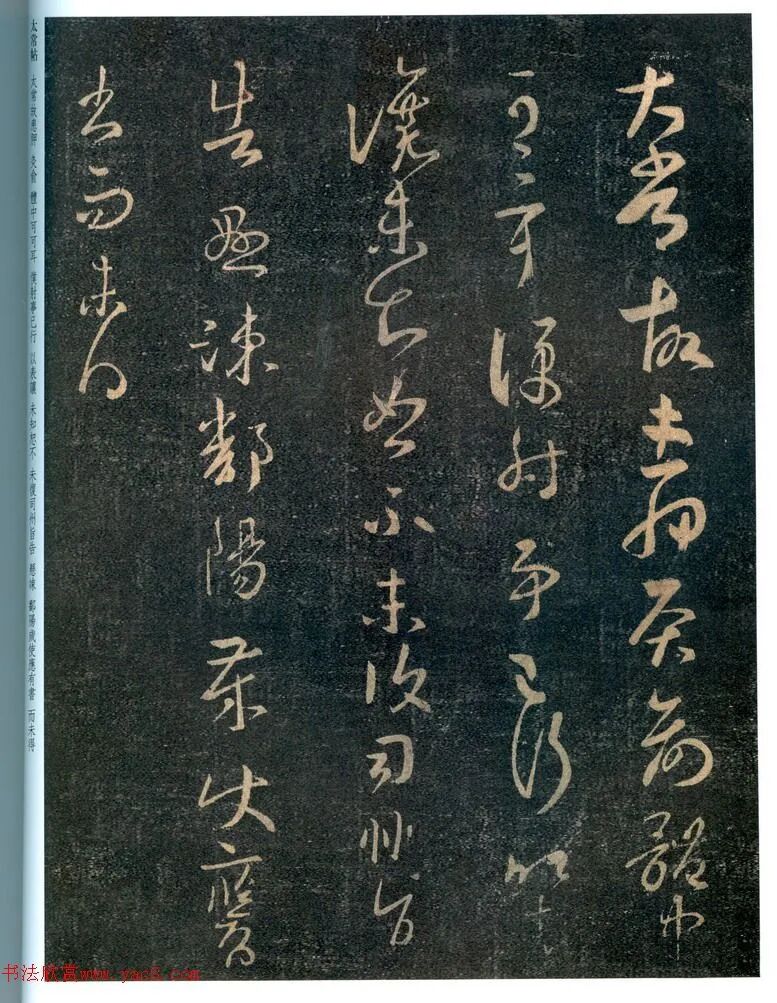 太常故患胛灸俞體中
可可耳僕射事已行以表
讓未知恕不未復司州旨
告懸竦鄱陽歲使應有
書而未得
太常帖 太常故患胛 灸俞 體中可可耳 僕射事已行 以表讓 未知恕不 未復司州旨告 懸竦 鄱陽歲使應有書 而未得
书法欣赏www.yac8.com